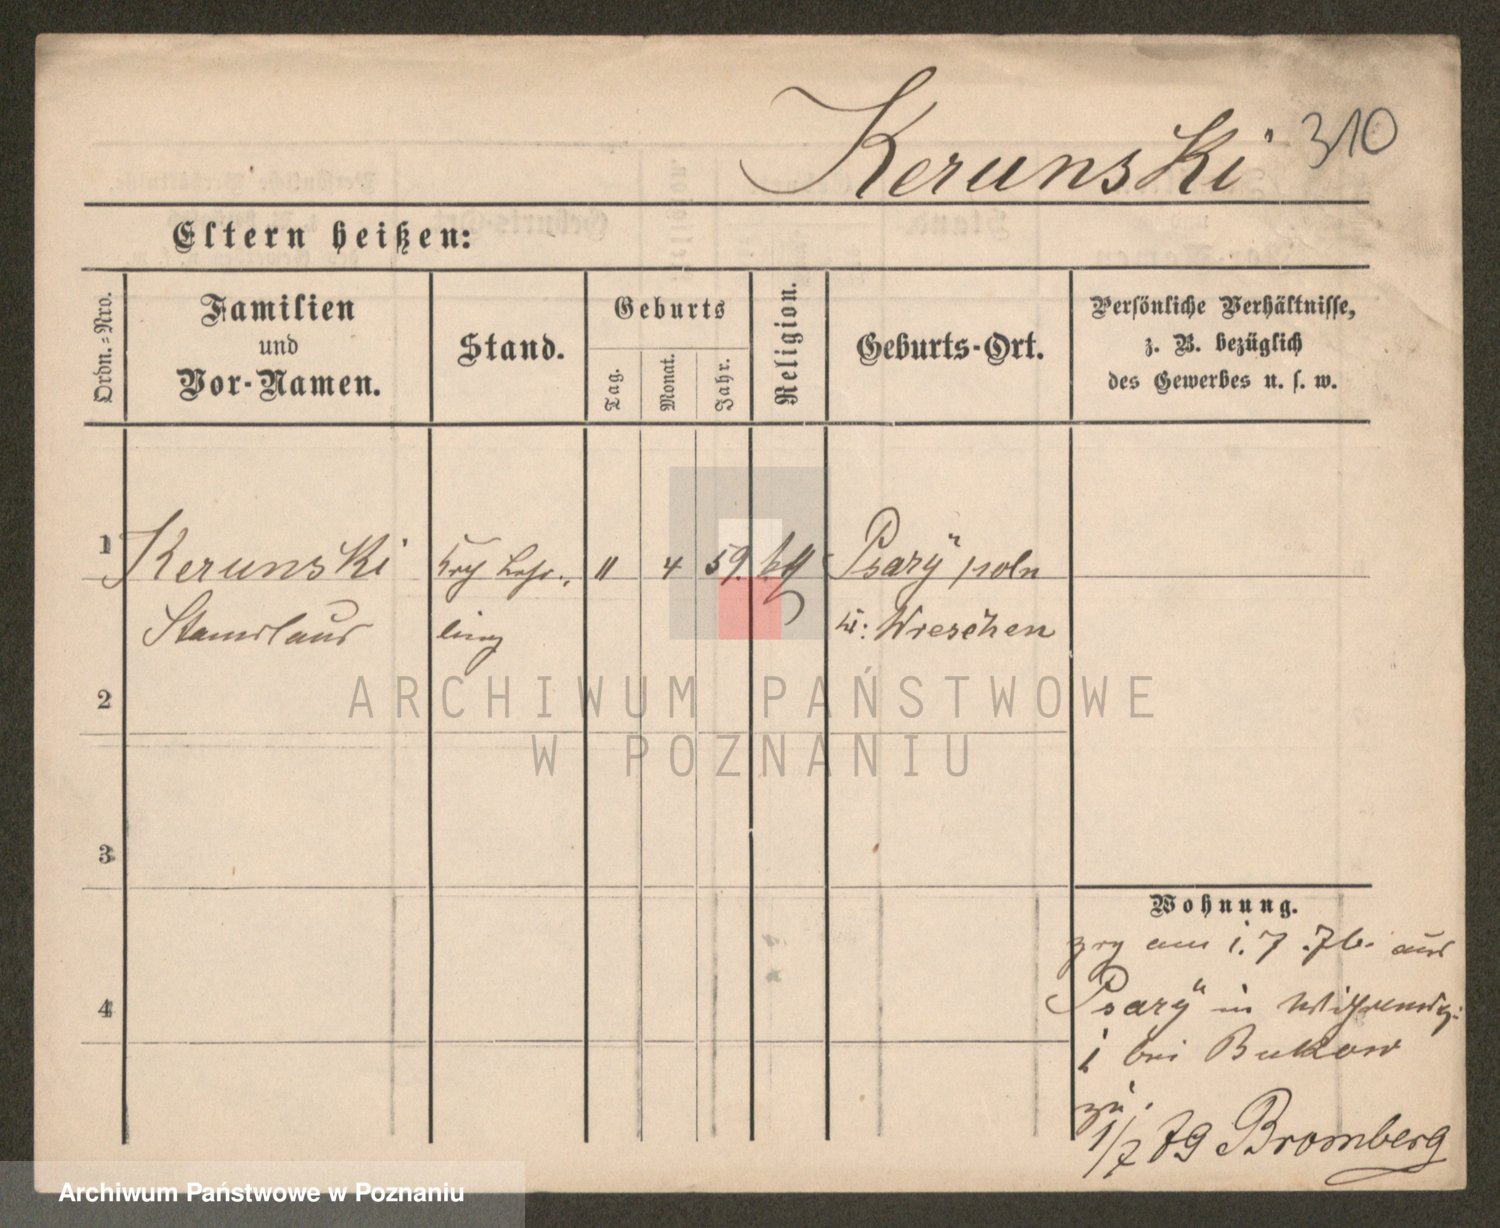 Kerunski 310
Eltern heißen:
Ordn.=Nro.
Familien
und
Vor-Namen.
Stand.
Geburts
Tag.
Monat.
Jahr.
Religion.
Geburts-Ort.
Persönliche Verhältnisse,
z. B. bezüglich
des Gewerbes u. s. w.
1 Kerunski 11 4 59. Psary poln
Stanislaus ling Kr: Wreschen
2
3
4
Wohnung.
zog am 1. 7. 76. aus
Psary in
1 bei Bukow
zu.
1/7 79 Bromberg
ARCHIWUM PAŃSTWOWE
W POZNANIU
Archiwum Państwowe w Poznaniu